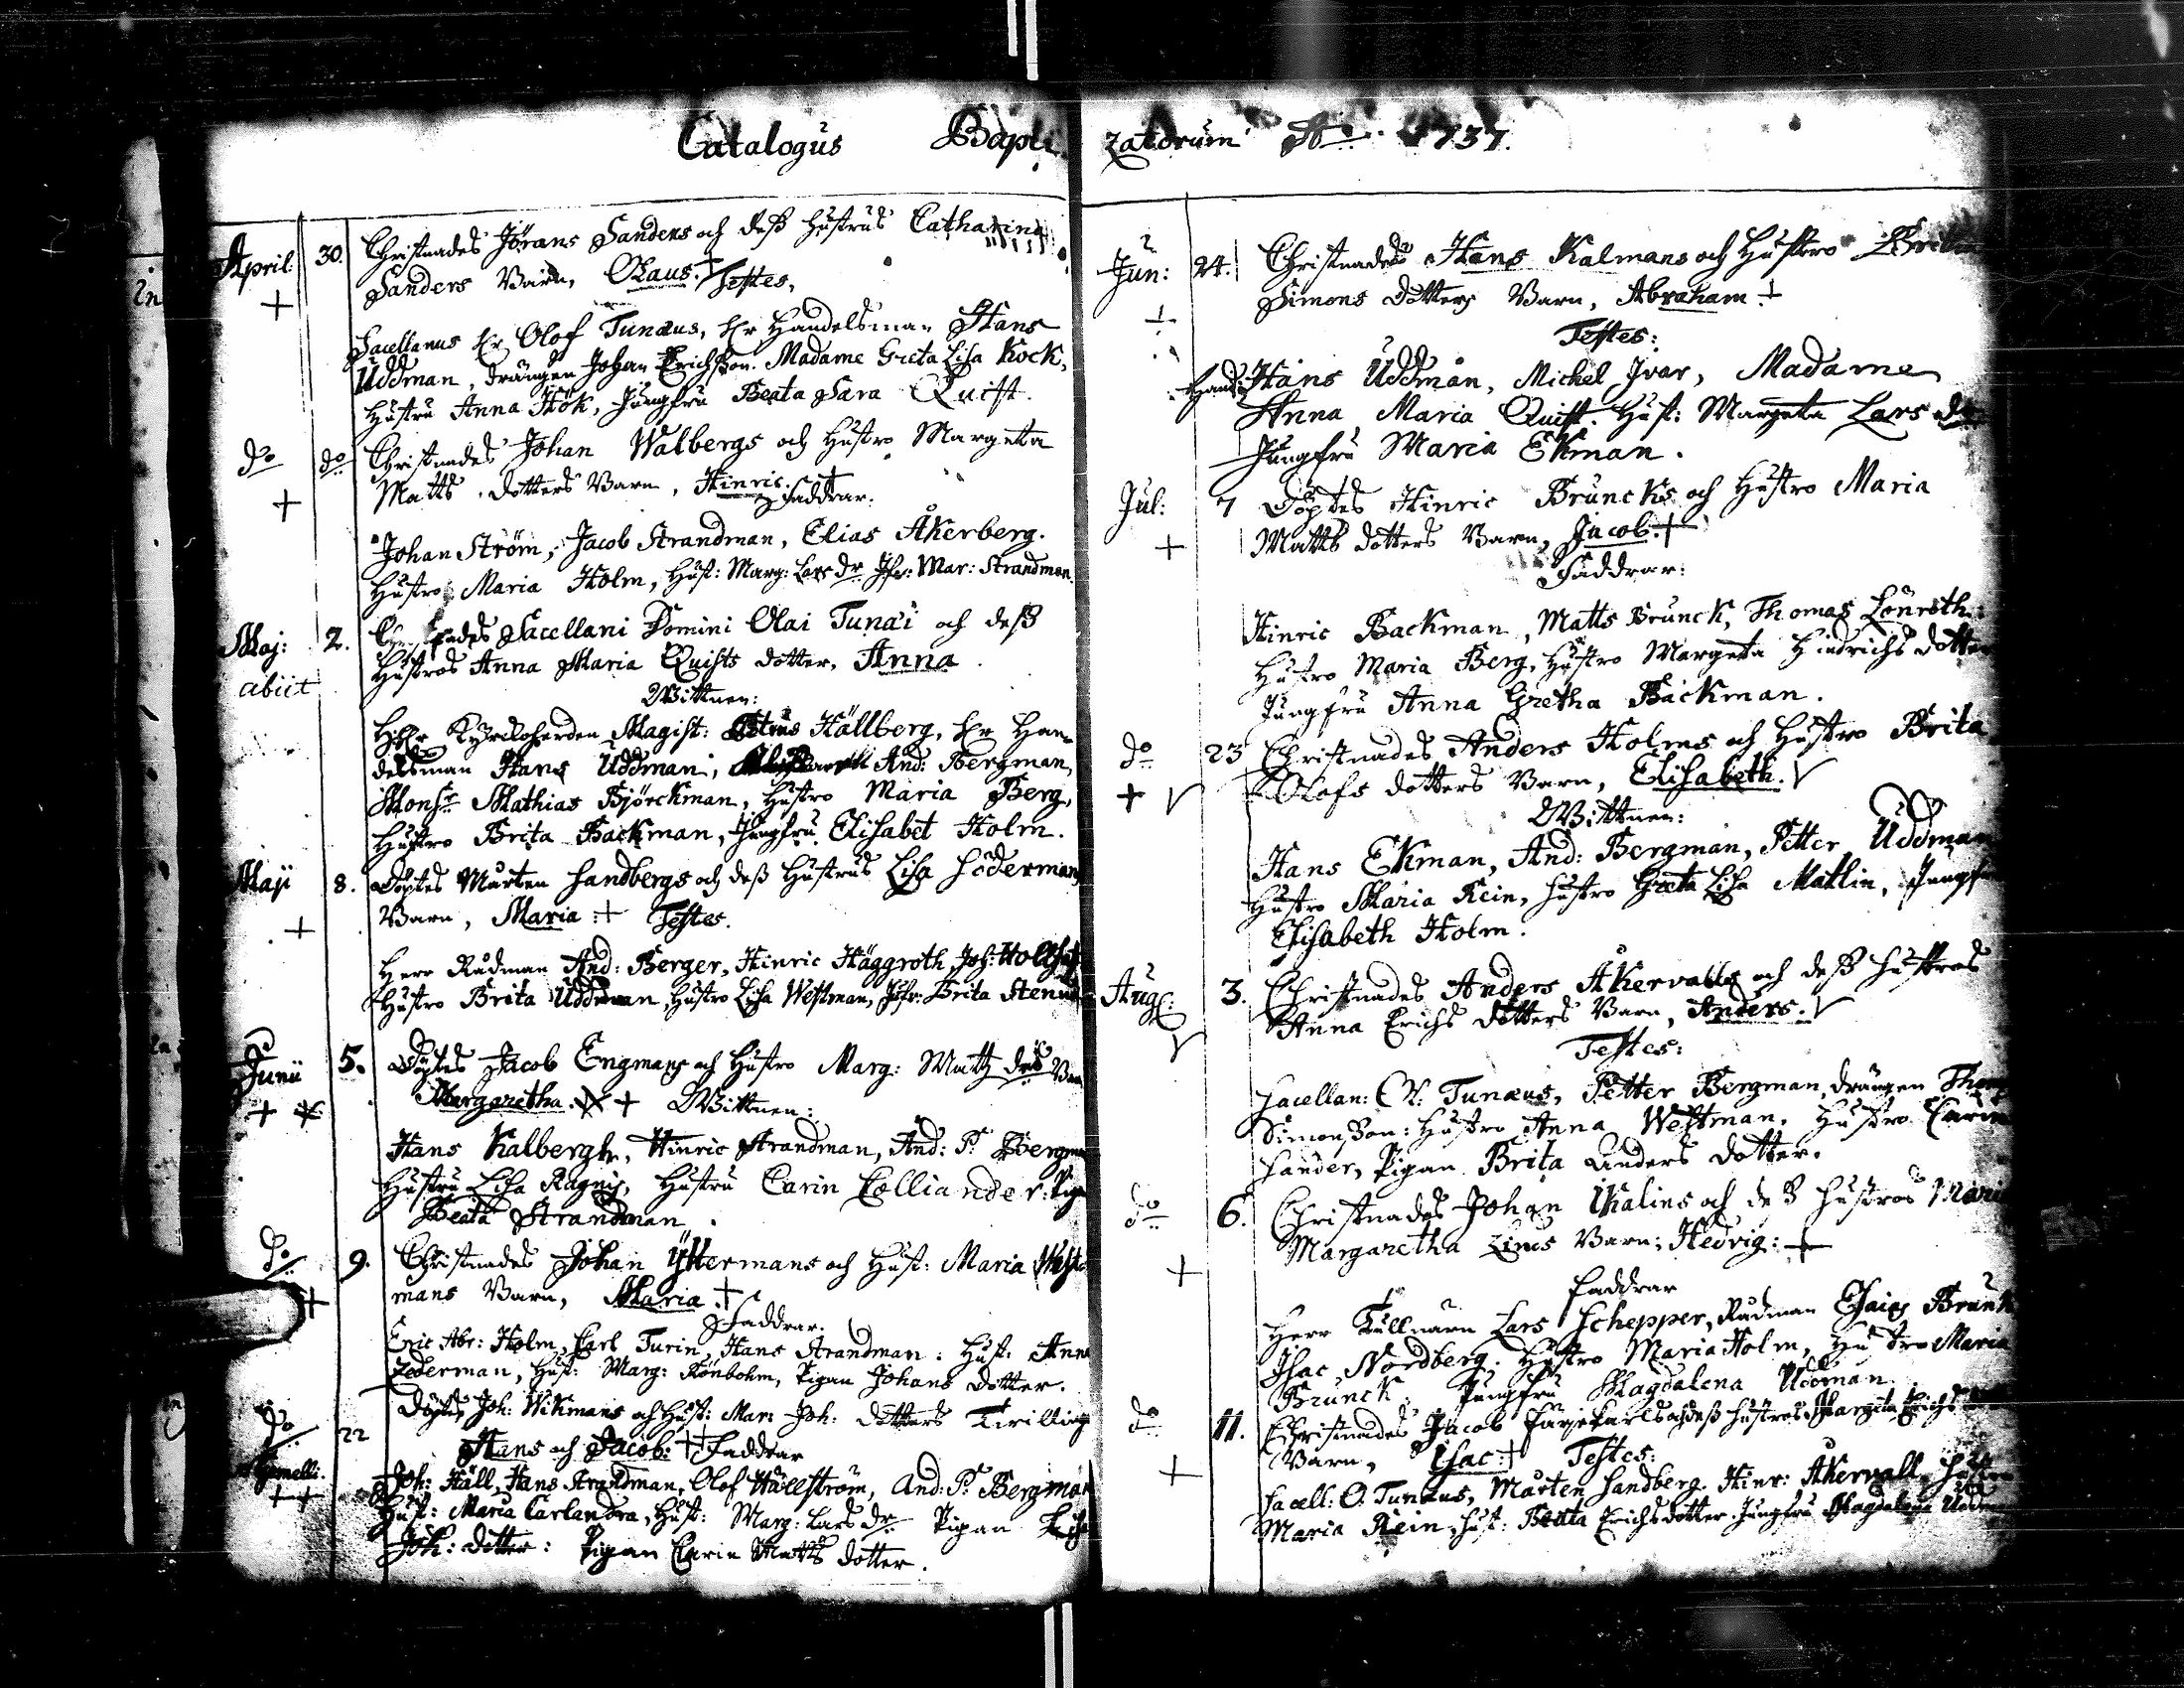 Catalogus Bapti
zatorum Ao 1737.
April: 30. Christnades Jörans Sanders och deß hustrus Catharina
+ Sanders Barn, Olaus. + Testes,
Sacellanus Hr Olof Tunæus, Hr Handelsman Hans
Uddman, drängen Johan Erichßon. Madame Greta Lisa Kock,
hustru Anna Hök, Jungfru Beata Sara Quist.
do do Christnades Johan Walbergs och hustro Margeta
+ Matts dotters Barn, Hinric. + Faddrar.
Johan Ström, Jacob Strandman, Elias Åkerberg.
Hustro Maria Holm, Hust: Marg: Lars dr Jfr: Mar: Strandman.
Maj: 2. Christnades Sacellani Domini Olai Tunæi och deß
abiit hustros Anna Maria Quists dotter, Anna.
Wittnen:
Kyrckioherden Magist: Petrus Hällberg, Hr Han-
delsman Hans Uddman, And: Bergman,
Monsr Mathias Björckman, Hustro Maria Berg,
Hustro Brita Backman, Jungfru Elisabet Holm.
Maji 8. Döptes Mårten Sandbergs och deß hustrus Lisa Södermans
+ Barn, Maria: + Testes.
Herr Rådman And: Berger, Hinric Häggroth, Joh:
Hustro Brita Uddman, Hustro Lisa Westman, Jfr: Brita
Junii 5. Döptes Jacob Engmans och Hustro Marg: Matts drs Barn
+ Margaretha. + Wittnen:
Hans Kalbergh, Hinric Strandman, And: P. Bergman
Hustru Lisa Ragnis, Hustru Carin Colliander: Pigan
Beata Strandman.
do 9. Christnades Johan Yttermans och Hust: Maria West-
+ mans Barn, Maria +
Faddrar.
Eric Abr: Holm, Carl Turin, Hans Strandman: Hust: Anna
Zederman, Hust: Marg: Rönbohm, Pigan Johans dotter.
do 22 Döptes Joh: Wikmans och Hust: Mar: Joh: dotters Twillingar
Gemelli. Hans och Jacob: ++ Faddrar
++ Joh: Häll, Hans Strandman, Olof Hällström, And: P. Bergman
Hust: Maria Carlandra, Hust: Marg: Lars dr Pigan Lisa
Joh: dotter: Pigan Carin Matts dotter.
Jun: 24. Christnades Hans Kalmans och Hustro Britha
+ Simons dotters Barn, Abraham +
Testes:
Hand: Hans Uddman, Michel Ivar, Madame
Anna Maria Quist. Hust: Margeta Lars dr
Jungfru Maria Ekman.
Jul: 7 Döptes Hinric Bruncks och Hustro Maria
+ Matts dotters Barn, Jacob. +
Faddrar:
Hinric Backman, Matts Brunck, Thomas Lönroth:
Hustro Maria Berg, Hustro Margeta Hindrichs dotter
Jungfru Anna Gretha Backman.
do 23 Christnades Anders Holms och Hustro Brita
+ Olofs dotters Barn, Elisabeth.
Wittnen:
Hans Ekman, And: Bergman, Petter Uddman
Hustro Maria Rein, Hustro Greta Lisa Matlin, Jungfru
Elisabeth Holm.
Aug: 3. Christnades Anders Åkervalls och deß hustros
Anna Erichs dotters Barn, Anders.
Testes:
Sacellan: O: Tunæus, Petter Bergman, drängen Thomas
Simonßon: Hustro Anna Westman, Hustro Carin
Sander, Pigan Brita Anders dotter.
do 6. Christnades Johan Thalins och deß hustros Maria
+ Margaretha Zims Barn; Hedvig: +
Faddrar
Herr Tullnärn Lars Schepper, Rådman Esaias Brunk
Isac Nordberg. Hustro Maria Holm, Hustro Maria
Brunck. Jungfru Magdalena Uddman.
do 11. Christnades Jacob Färjekarls och deß hustros Margeta Erichs dotters
+ Barn, Isac: + Testes:
Sacell: O: Tunæus, Mårten Sandberg. Hinr: Åkervall, Hustro
Maria Rein, Hust: Beata Erichsdotter. Jungfru Magdalena Uddman